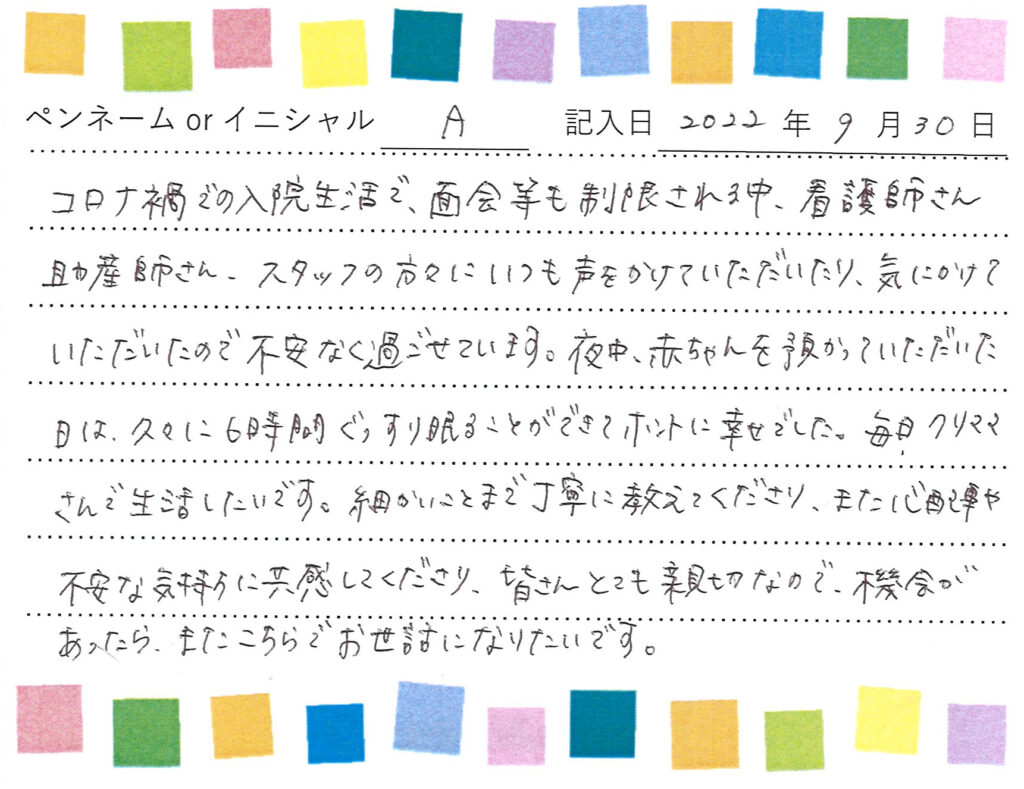 ペンネーム or イニシャル A 記入日 2022 年 9 月 30 日
コロナ禍での入院生活で、面会等も制限される中、看護師さん
助産師さん、スタッフの方々にいつも声をかけていただいたり、気にかけて
いただいたので不安なく過ごせています。夜中、赤ちゃんを預かっていただいた
日は、久々に6時間ぐっすり眠ることができてホントに幸せでした。毎日クリママ
さんで生活したいです。細かいことまで丁寧に教えてくださり、また心配事や
不安な気持ちに共感してくださり、皆さんとても親切なので、機会が
あったら、またこちらでお世話になりたいです。